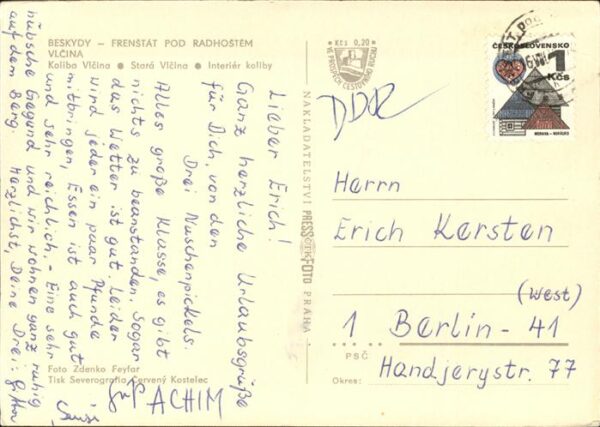 BESKYDY – FRENŠTÁT POD RADHOŠTĚM
VLČINA
Koliba Vlčina ● Stará Vlčina ● Interiér koliby
Lieber Erich!
Ganz herzliche Urlaubsgrüße
für Dich, von den
Drei Muschenpickels.
Alles große Klasse, es gibt
nichts zu beanstanden. Sogar
das Wetter ist gut. Leider
wird jeder ein paar Pfunde
mitbringen, Essen ist auch gut
und sehr reichlich. – Eine sehr
hübsche Gegend und wir wohnen ganz ruhig
auf dem Berg. Herzlichst, Deine Drei:
ACHIM
Foto Zdenko Feyfar
Tisk Severografia Červený Kostelec
NAKLADATELSTVÍ PRESSFOTO PRAHA
Kčs 0,20
VE PROSPĚCH CESTOVNÍHO RUCHU
ČESKOSLOVENSKO
1
Kčs
MORAVA - HORŇÁCKO
DDR
Herrn
Erich Kersten
(West)
1 Berlin - 41
PSČ
Handjerystr. 77
Okres: